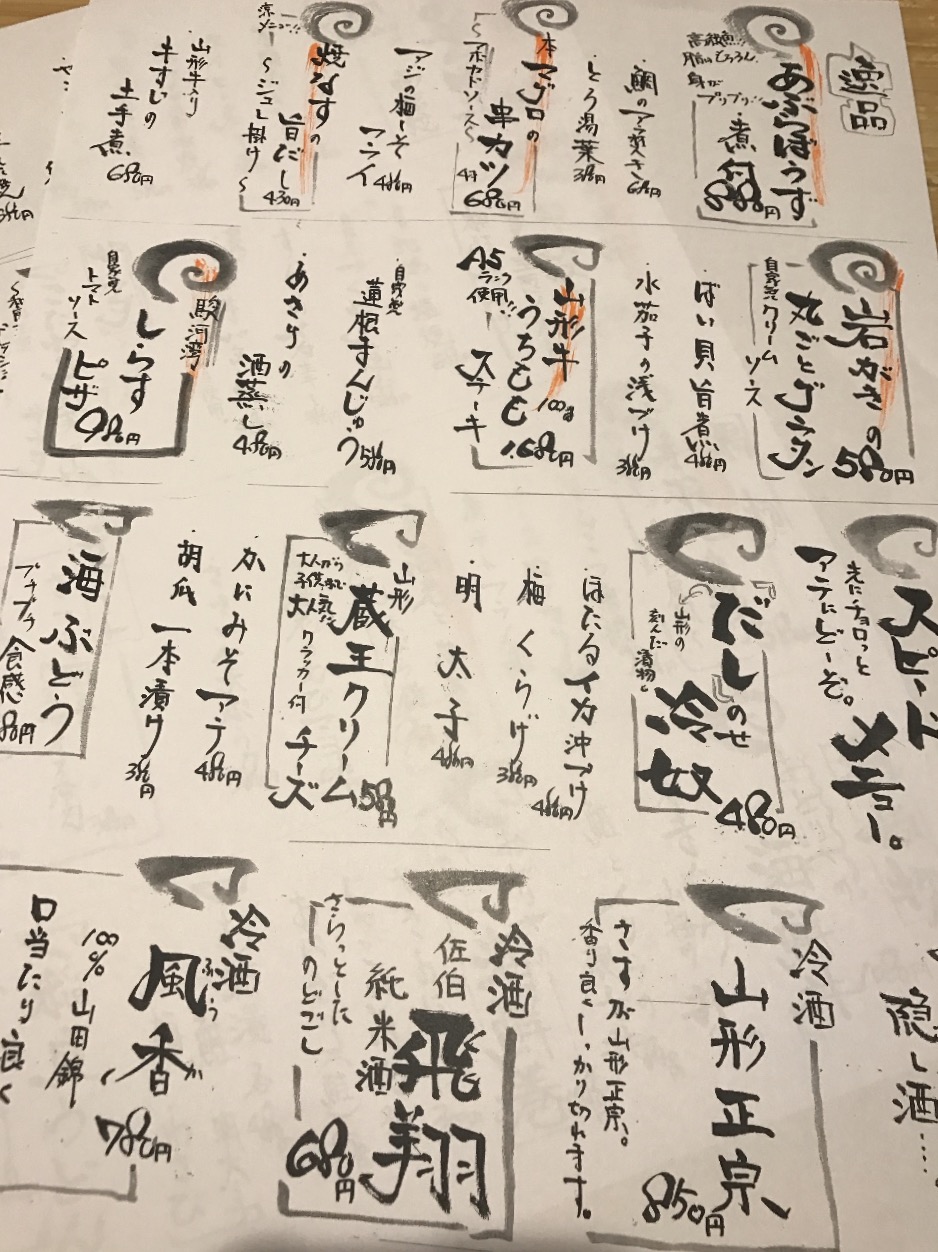 逸品
高級魚!!
脂はとろろん
身が
プリプリ!!
あぶらぼうず
煮付
880円
・鯛のアラ炊き 680円
・とろ湯葉 380円
本マグロの
串カツ
〜アボカドソース〜
680円
・アジの梅しそ
フライ
480円
涼メニュー!!
焼なすの
旨だし
〜ジュレ掛け〜
430円
・山形牛
牛すじの
土手煮
680円
岩がきの
丸ごとグラタン
580円
自家製クリーム
ソース
・ばい貝旨煮 480円
・水茄子の浅づけ 380円
山形牛
うちもも
100g
1,680円
A5
ランク
使用!!
ステーキ
・自家製
蓮根まんじゅう
580円
・あさりの
酒蒸し
480円
駿河湾
しらす
ピザ
980円
自家製
トマト
ソース
スピードメニュー。
先にチョロっと
アテにどーぞ。
だしのせ
冷奴
480円
山形の
刻んだ
漬物
・ほたるイカ沖づけ 480円
・梅くらげ 380円
・明太子 480円
山形
蔵王クリーム
チーズ
580円
大人から
子供まで
大人気!!
クラッカー付
・かにみそアテ 480円
・胡瓜一本漬け 380円
海ぶどう
プチプチ
食感
隠し酒……
冷酒
山形正宗
850円
さすが山形正宗。
香り良くしっかり切れます。
冷酒
佐伯
飛翔
純米酒
680円
さらっとした
のどごし
冷酒
風香
ふうか
780円
100%山田錦
口当たり良く